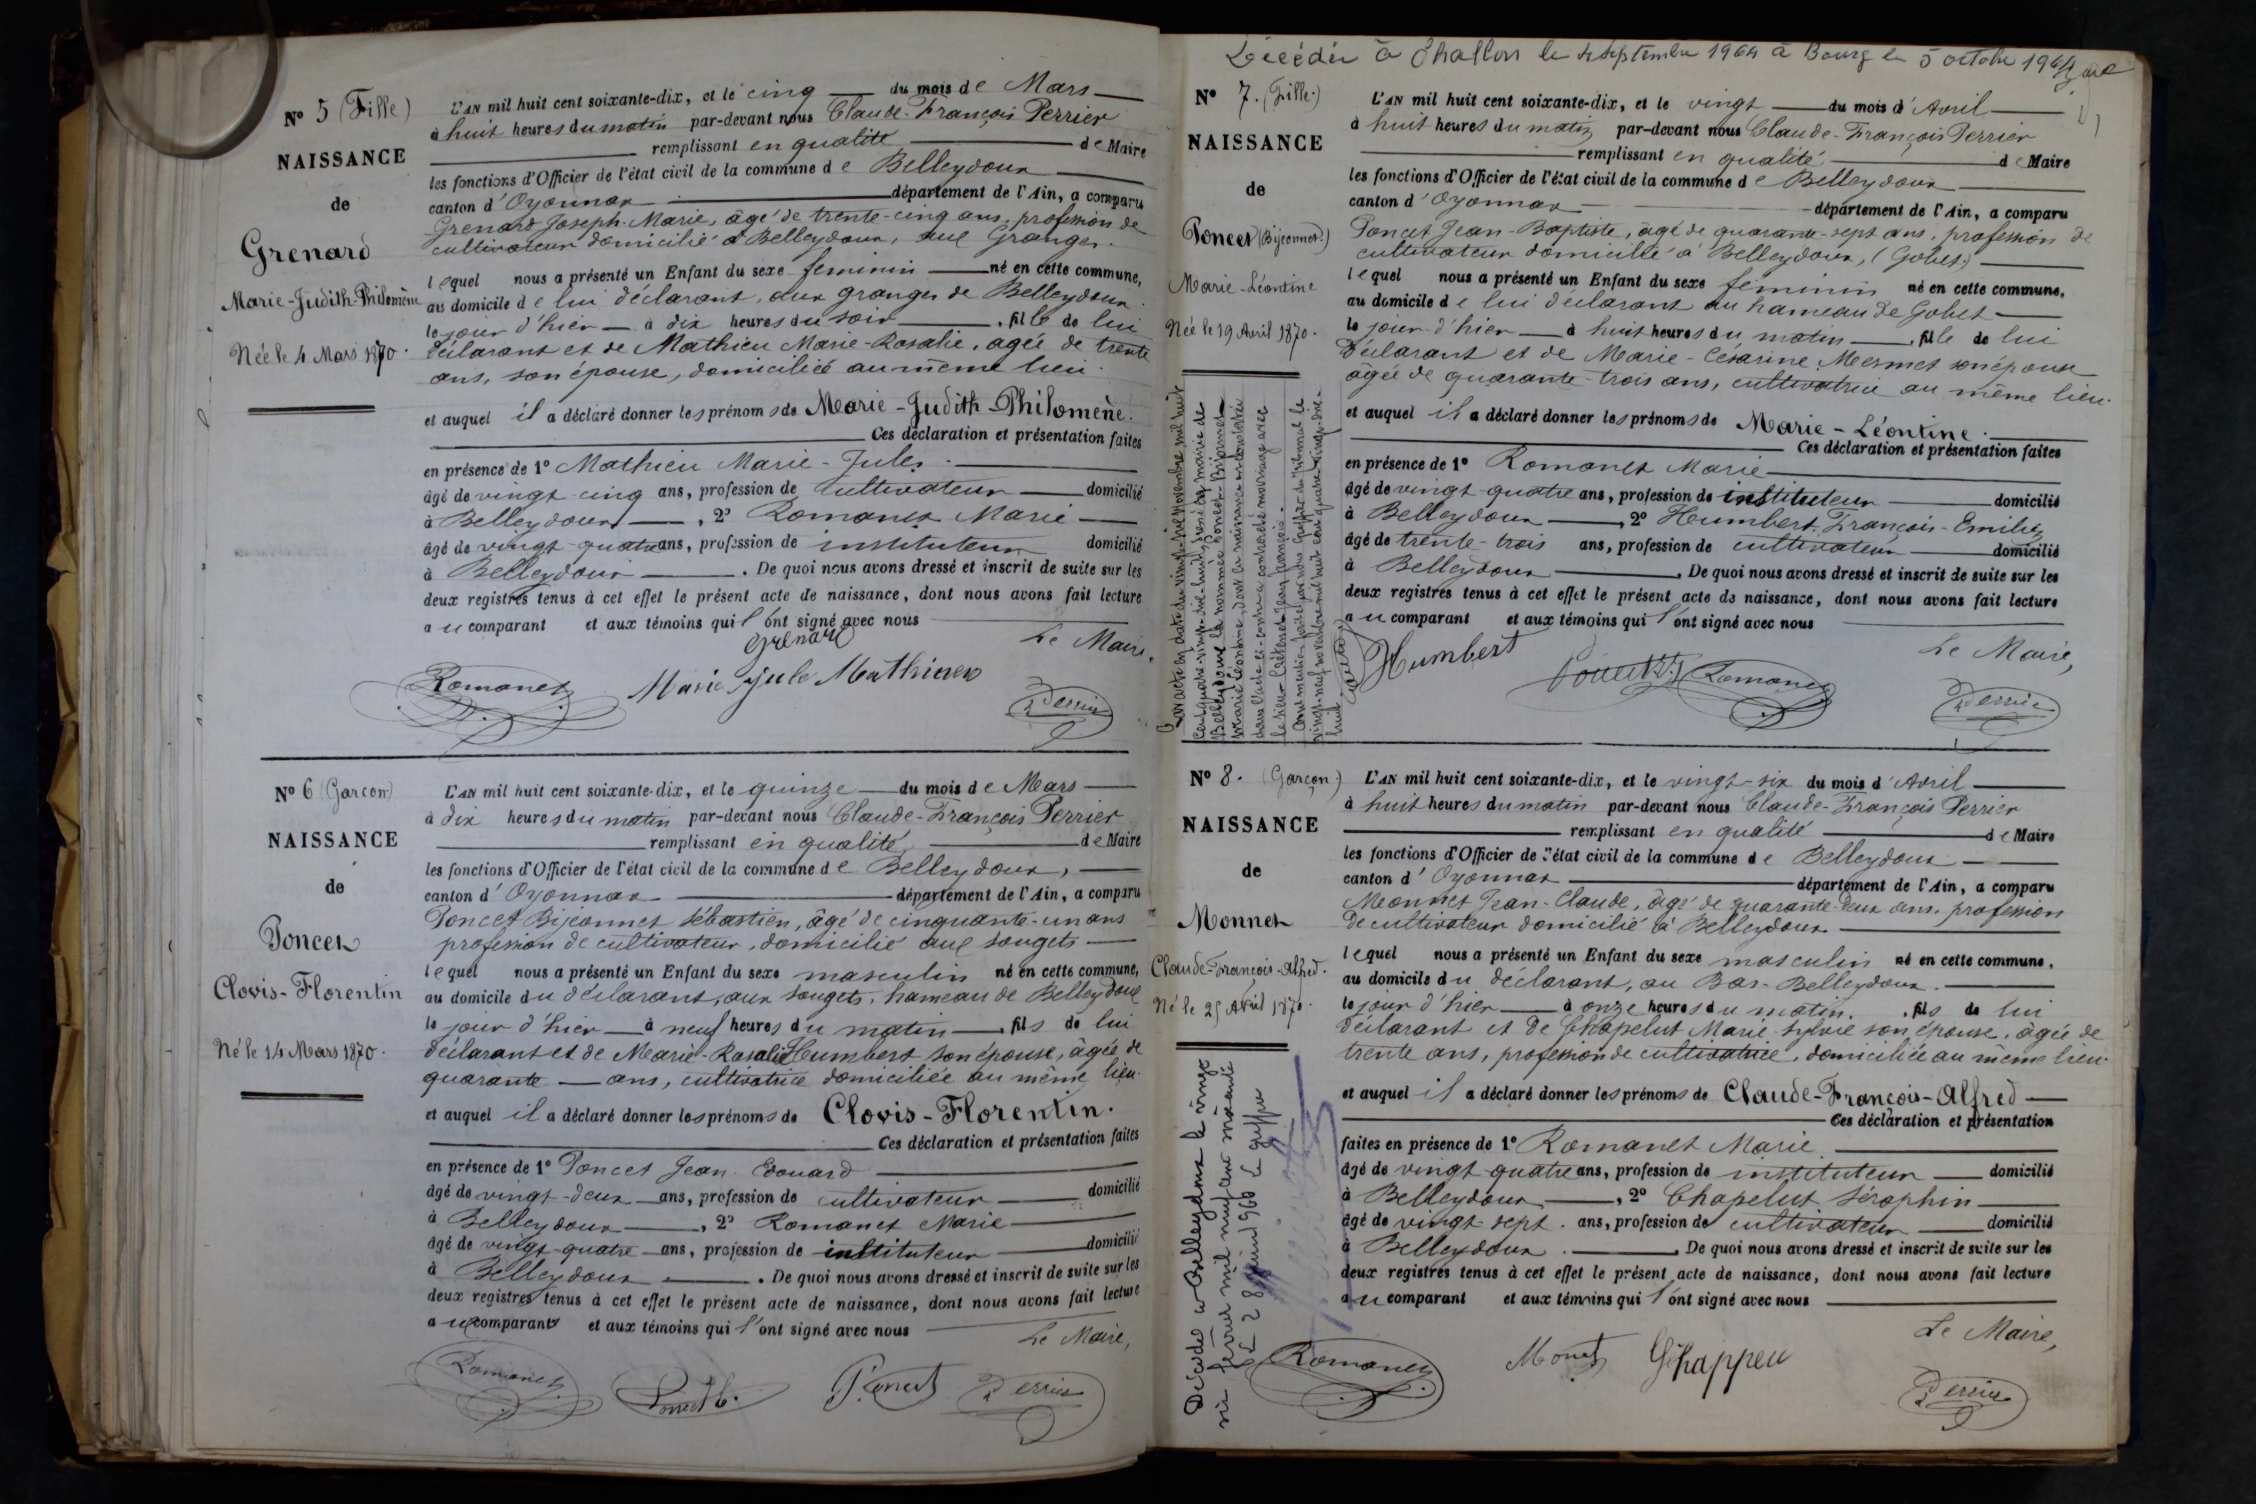 N° 5 (Fille)
NAISSANCE
de
Grenard
Marie-Judith-Philomène
Née le 4 Mars 1870.
L'AN mil huit cent soixante-dix, et le cinq du mois de Mars
à huit heures du matin par-devant nous Claude-François Perrier
remplissant en qualité de Maire
les fonctions d'Officier de l'état civil de la commune de Belleydoux
canton d'Oyonnax département de l'Ain, a comparu
Grenard Joseph-Marie, âgé de trente-cinq ans, profession de
cultivateur domicilié à Belleydoux, aux Granges.
lequel nous a présenté un Enfant du sexe feminin né en cette commune,
au domicile de lui déclarant, aux granges de Belleydoux.
le jour d'hier à dix heures du soir, fille de lui
déclarant et de Mathieu Marie-Rosalie, agée de trente
ans, son épouse, domiciliée au même lieu.
et auquel il a déclaré donner les prénoms de Marie-Judith-Philomène.
Ces déclaration et présentation faites
en présence de 1° Mathieu Marie-Jules.
âgé de vingt-cinq ans, profession de cultivateur domicilié
à Belleydoux, 2° Romanet Marie
âgé de vingt-quatre ans, profession de instituteur domicilié
à Belleydoux. De quoi nous avons dressé et inscrit de suite sur les
deux registres tenus à cet effet le présent acte de naissance, dont nous avons fait lecture
au comparant et aux témoins qui l'ont signé avec nous
Grenard
Le Maire,
Romanet
Marie Jule Mathieu
Perrier
N° 6 (Garçon)
NAISSANCE
de
Poncet
Clovis-Florentin
Né le 14 Mars 1870.
L'AN mil huit cent soixante-dix, et le quinze du mois de Mars
à dix heures du matin par-devant nous Claude-François Perrier
remplissant en qualité de Maire
les fonctions d'Officier de l'état civil de la commune de Belleydoux,
canton d'Oyonnax département de l'Ain, a comparu
Poncet Bijeonnet Sébastien, âgé de cinquante-un ans
profession de cultivateur, domicilié aux Sougets
lequel nous a présenté un Enfant du sexe masculin né en cette commune,
au domicile du déclarant, aux Sougets, hameau de Belleydoux
le jour d'hier à neuf heures du matin, fils de lui
déclarant et de Marie-Rosalie Humbert son épouse, âgée de
quarante ans, cultivatrice domiciliée au même lieu.
et auquel il a déclaré donner les prénoms de Clovis-Florentin.
Ces déclaration et présentation faites
en présence de 1° Poncet Jean Edouard
âgé de vingt-deux ans, profession de cultivateur domicilié
à Belleydoux, 2° Romanet Marie
âgé de vingt-quatre ans, profession de instituteur domicilié
à Belleydoux. De quoi nous avons dressé et inscrit de suite sur les
deux registres tenus à cet effet le présent acte de naissance, dont nous avons fait lecture
au comparant et aux témoins qui l'ont signé avec nous
Le Maire,
Romanet
Poncet
Poncet
Perrier
Décédée à le 4 septembre 1964 à Bourg le 5 octobre 1964
N° 7. (Fille.)
NAISSANCE
de
Poncet (Bijeonnet.)
Marie-Léontine
Née le 19 Avril 1870.
L'AN mil huit cent soixante-dix, et le vingt du mois d'Avril
à huit heures du matin par-devant nous Claude-François Perrier
remplissant en qualité de Maire
les fonctions d'Officier de l'état civil de la commune de Belleydoux
canton d'Oyonnax département de l'Ain, a comparu
Poncet Jean-Baptiste, âgé de quarante-sept ans, profession de
cultivateur domicilié à Belleydoux, (Gobet.)
lequel nous a présenté un Enfant du sexe feminin né en cette commune,
au domicile de lui déclarant au hameau de Gobet
le jour d'hier à huit heures du matin, fille de lui
déclarant et de Marie-Césarine Mermet son épouse
âgée de quarante-trois ans, cultivatrice au même lieu.
et auquel il a déclaré donner les prénoms de Marie-Léontine.
Ces déclaration et présentation faites
en présence de 1° Romanet Marie
âgé de vingt-quatre ans, profession de instituteur domicilié
à Belleydoux, 2° Humbert François-Emile
âgé de trente-trois ans, profession de cultivateur domicilié
à Belleydoux. De quoi nous avons dressé et inscrit de suite sur les
deux registres tenus à cet effet le présent acte de naissance, dont nous avons fait lecture
au comparant et aux témoins qui l'ont signé avec nous
Le Maire,
Humbert
Romanet
Perrier
Par acte en date du vingt-six novembre mil huit
cent quatre-vingt-dix-huit, dressé à la mairie de
Belleydoux la nommée Poncet-Bijeonnet
Marie Léontine, dont la naissance est constatée
dans l'acte ci-contre a contracté mariage avec
N° 8. (Garçon)
NAISSANCE
de
Monnet
Claude-François-Alfred.
Né le 25 Avril 1870.
L'AN mil huit cent soixante-dix, et le vingt-six du mois d'Avril
à huit heures du matin par-devant nous Claude-François Perrier
remplissant en qualité de Maire
les fonctions d'Officier de l'état civil de la commune de Belleydoux
canton d'Oyonnax département de l'Ain, a comparu
Monnet Jean-Claude, âgé de quarante-deux ans, profession
de cultivateur domicilié à Belleydoux
lequel nous a présenté un Enfant du sexe masculin né en cette commune,
au domicile du déclarant, au Bas-Belleydoux.
le jour d'hier à onze heures du matin, fils de lui
déclarant et de Chapelut Marie-Sylvie son épouse, âgée de
trente ans, profession de cultivatrice, domiciliée au même lieu.
et auquel il a déclaré donner les prénoms de Claude-François-Alfred
Ces déclaration et présentation
faites en présence de 1° Romanet Marie
âgé de vingt-quatre ans, profession de instituteur domicilié
à Belleydoux, 2° Chapelut Séraphin
âgé de vingt-sept ans, profession de cultivateur domicilié
à Belleydoux. De quoi nous avons dressé et inscrit de suite sur les
deux registres tenus à cet effet le présent acte de naissance, dont nous avons fait lecture
au comparant et aux témoins qui l'ont signé avec nous
Le Maire,
Romanet
Monet
Perrier
Décédé à Belleydoux le vingt
six février mil neuf cent soixante